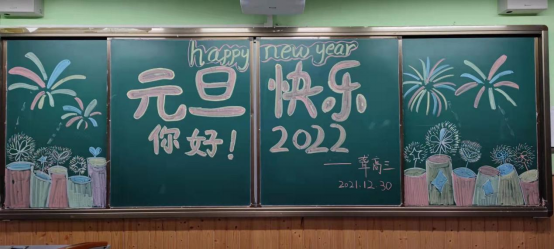 happy new year
元旦快乐
你好！2022
——莘高三
2021.12.30